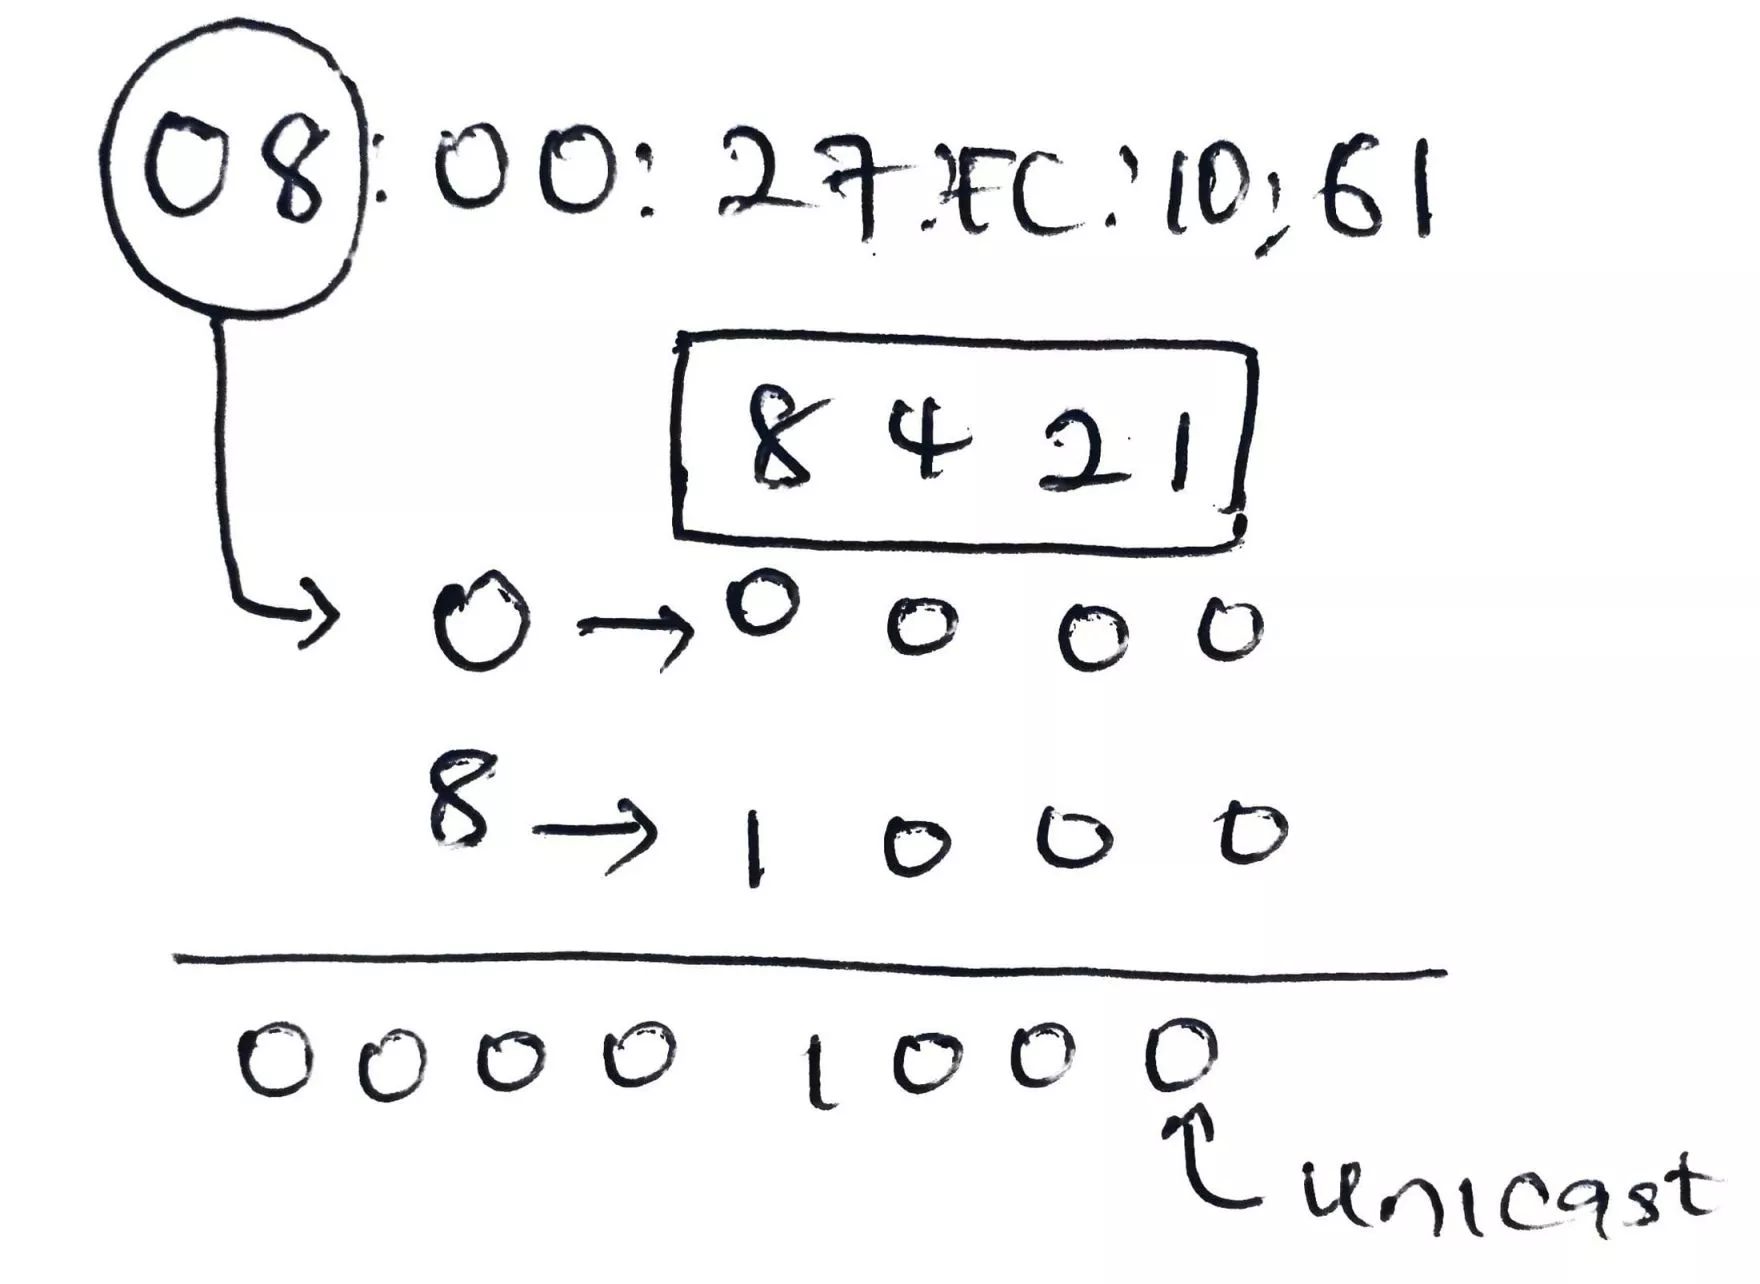 08:00:27:EC:10:61
8 4 2 1
0 → 0 0 0 0
8 → 1 0 0 0
0 0 0 0 1 0 0 0
unicast